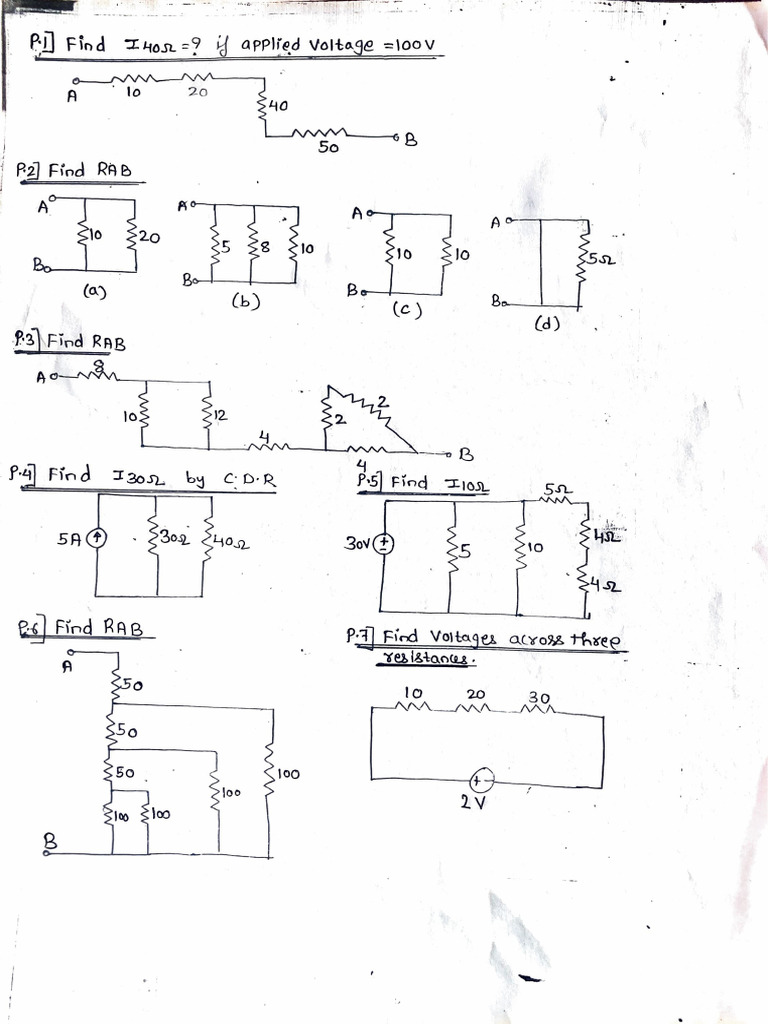 P.1] Find I40Ω = ? if applied voltage = 100V
A 10 20
40
50 B
P.2] Find RAB
A 10 20 B
(a)
A 5 8 10 B
(b)
A 10 10 B
(c)
A 5Ω B
(d)
P.3] Find RAB
A 8
10 12 2 2
4 4 B
P.4] Find I30Ω by C.D.R
5A 30Ω 40Ω
P.5] Find I10Ω
5Ω
30V 5 10 4Ω
4Ω
P.6] Find RAB
A
50
50
50 100 100
100 100
B
P.7] Find Voltages across three
resistances.
10 20 30
2V